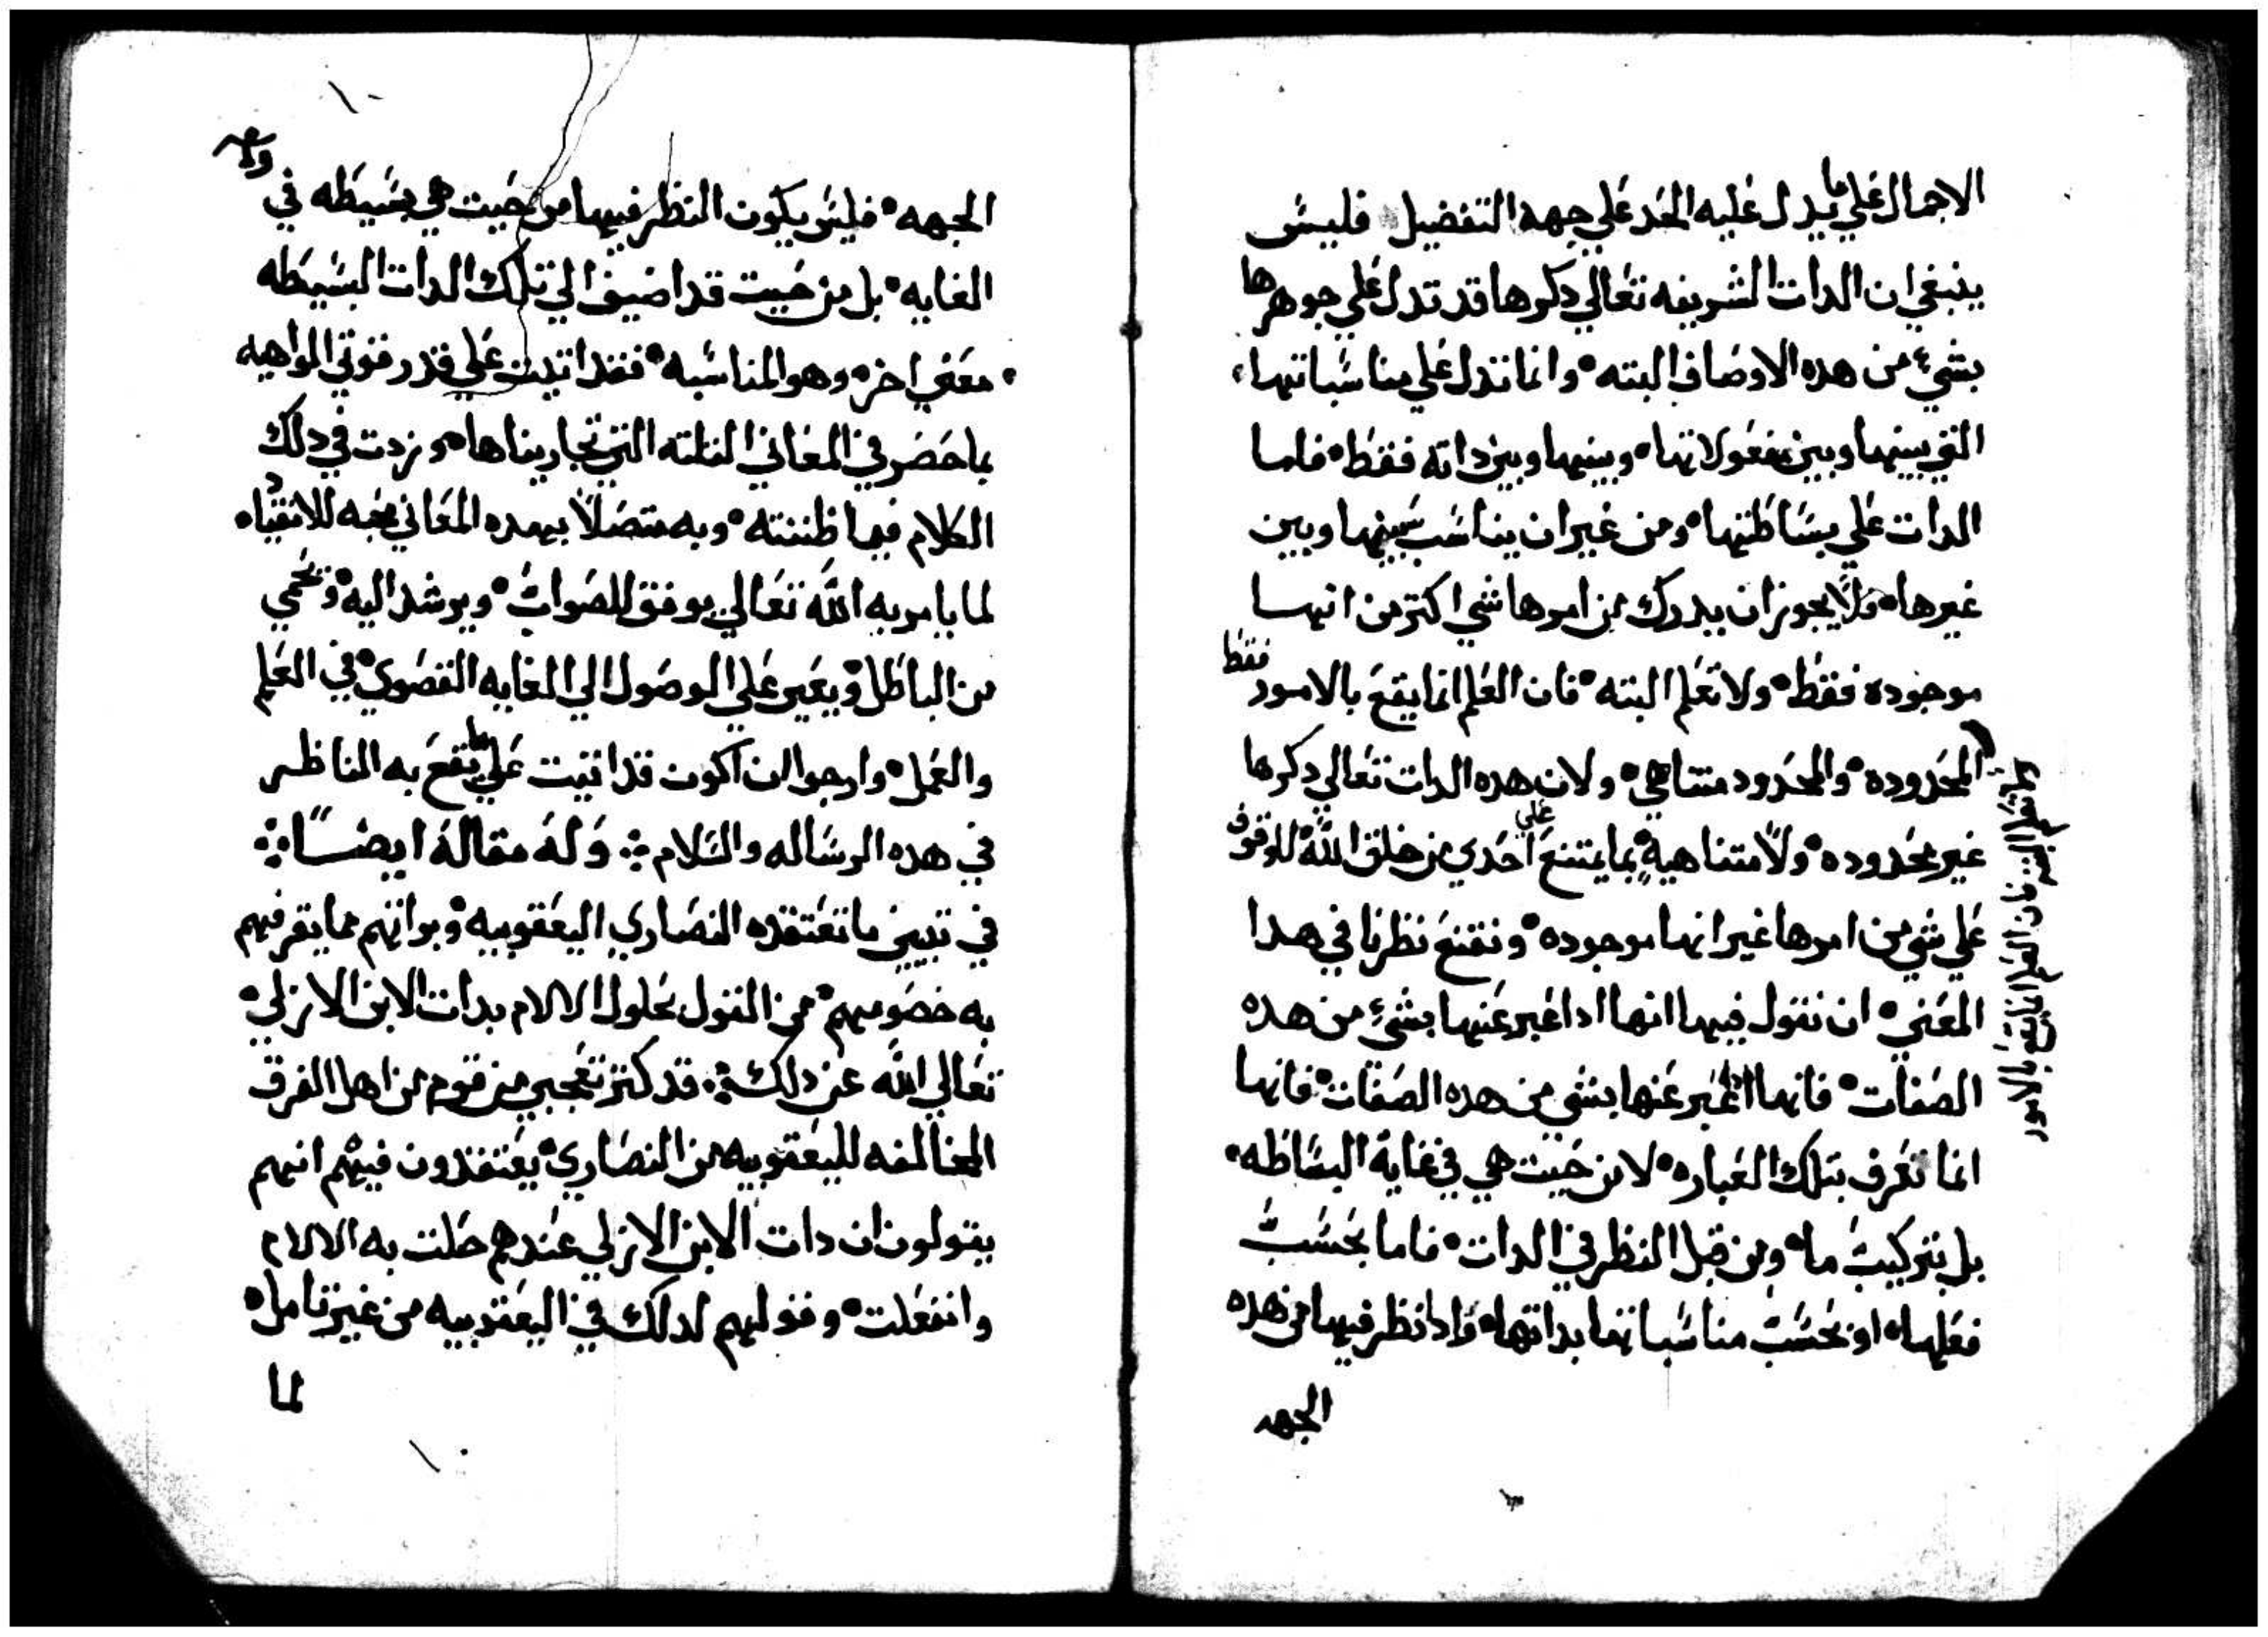 الاجمال علي ما يدل عليه الحد علي جهة التفضيل فليس
ينبغي ان الدات الشريفه تعالي دكرها قد تدل علي جوهرها
بشيء من هده الاوصاف البته ° وانما تدل علي مناسباتها
التي بينها وبين مفعولاتها ° وبينها وبين داته فقط ° فاما
الدات علي بساطتها ° ومن غير ان يناسب بينها وبين
غيرها ° فلا يجوز ان يدرك من امرها شي اكتر من انها
موجوده فقط ° ولا تعلم البته ° فان العلم انما يقع بالامور فقط
المحدوده ° والمحدود متناهي ° ولان هده الدات تعالي دكرها
غير محدوده ° ولا متناهية بما يمتنع علي احدي من خلق الله للوقوف
علي شي من امرها غير انها موجوده ° ونقنع نظرنا في هدا
المعني ° ان نقول فيها انها ادا عبر عنها بشيء من هده
الصفات ° فانها ادا عبر عنها بشي من هده الصفات ° فانها
انما تعرف بتلك العباره ° لا من حيت هي في غاية البساطه °
بل بتركيب ما ° ومن قبل النظر في الدات ° فاما بحسب
فعلها ° او بحسب مناسباتها بداتها ° فادا نظر فيها من هده
الجهه
فان العلم انما يقع بالامور
الجهه ° فليس يكون النظر فيها من حيت هي بسيطه في
الغايه ° بل من حيت قد اضيف الي تلك الدات البسيطه
معني اخر ° وهو المناسبه ° فقد اتيت علي قدر قوتي الواهيه
بما حضر في المعاني التلته التي تجاريناها ° وزدت في دلك
الكلام فيما ظننته ° وبه متصلاً بهده المعاني للانقياد
لما يامر به الله تعالي يوفق للصواب ° ويرشد اليه ° ويحمي
من الباطل ° ويعين علي الوصول الي الغايه القصوي ° في العلم
والعمل ° وارجوا ان اكون قد اتيت علي ما يقع به الناظر
في هده الرساله والسلام ؞ وَله مقالة ايضـــاً ؞
في تبيين ما تعتقده النصاري اليعقوبيه ° وبراتهم مما يقرفهم
به خصومهم ° من القول بحلول الالام بدات الابن الازلي °
تعالي الله عن دلك ؞ قد كتر تعجبي من قوم من اهل الفرق
المخالفه لليعقوبيه من النصاري ° يعتقدون فيهم انهم
يقولون ان دات الابن الازلي عندهم حلت به الالام
وانفعلت ° وقولهم لدلك في اليعقوبيه من غير تامل °
لما